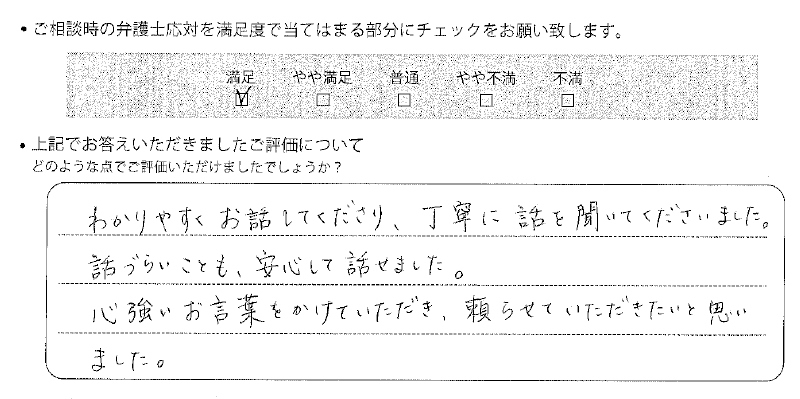 • ご相談時の弁護士応対を満足度で当てはまる部分にチェックをお願い致します。
満足 やや満足 普通 やや不満 不満
☑ □ □ □ □
• 上記でお答えいただきましたご評価について
どのような点でご評価いただけましたでしょうか？
わかりやすくお話してくださり、丁寧に話を聞いてくださいました。
話づらいことも、安心して話せました。
心強いお言葉をかけていただき、頼らせていただきたいと思い
ました。